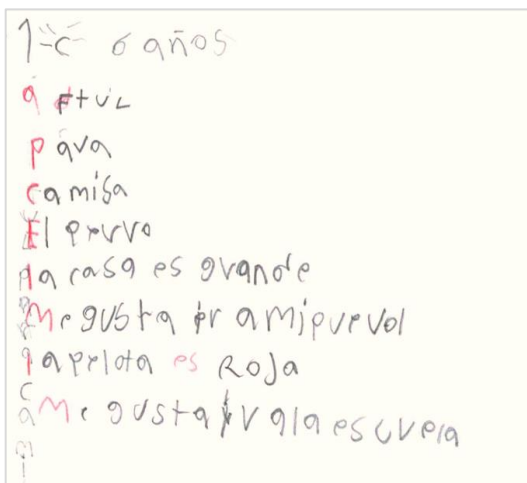 1-C 6 años
pava
camisa
El perro
la casa es grande
Me gusta ir a mi puevol
la pelota es Roja
Me gusta ir a la escuela